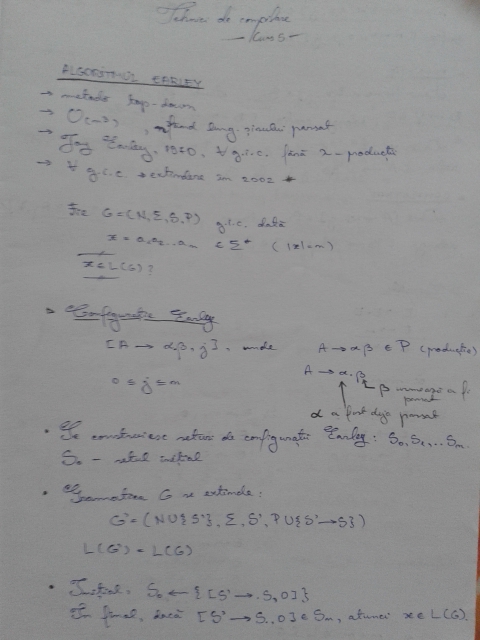 Tehnici de compilare
— Curs 5 —
ALGORITMUL EARLEY
→ metodă top-down
→ O(n³), n fiind lung. șirului parsat
→ Jay Earley, 1970, ∀ g.i.c. fără λ-producții
→ ∀ g.i.c. → extindere în 2002 *
Fie G=(N,Σ,S,P) g.i.c. dată
x = a₁a₂...aₙ ∈ Σ* (|x|=n)
x ∈ L(G)?
Configurație Earley
[A → α.β, j], unde A → αβ ∈ P (producție)
0 ≤ j ≤ n
A → α.β
β urmează a fi
parsat
α a fost deja parsat
• Se construiesc seturi de configurații Earley: S₀, S₁, ... Sₙ.
S₀ – setul inițial
• Gramatica G se extinde:
G' = (N∪{S'}, Σ, S', P∪{S'→S})
L(G') = L(G)
• Inițial: S₀ ← {[S' → .S, 0]}
În final, dacă [S' → S., 0] ∈ Sₙ, atunci x ∈ L(G).